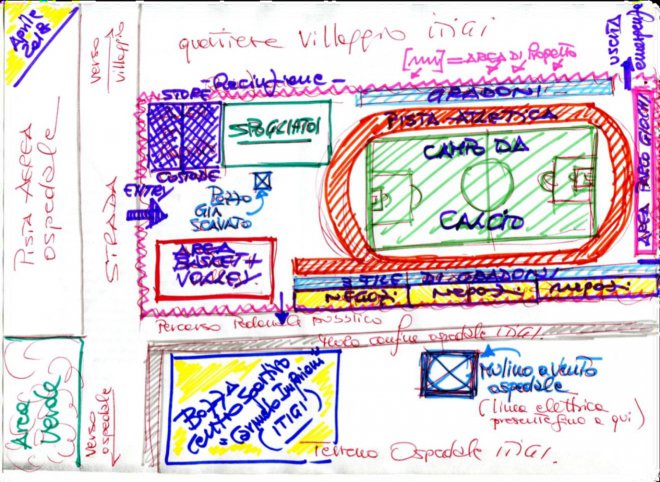 Aprile
2018
quartiere villaggio ITIGI
USCITA
emergenza
verso
villaggio
= AREA DI PROGETTO
- Recinzione -
STORE
GRADONI
PISTA ATLETICA
SPOGLIATOI
CAMPO DA
CALCIO
CUSTODE
PISTA AEREA
OSPEDALE
STRADA
ENTRY
POZZO
GIA
SCAVATO
AREA PARCO GIOCHI
AREA
BASKET +
VOLLEY
DI GRADONI
NEGOZI
NEGOZI
NEGOZI
Percorso pedonale pubblico
confine ospedale ITIGI.
Area
Verde
verso
ospedale
BOZZA
CENTRO SPORTIVO
(ITIGI)
MULINO A VENTO
OSPEDALE
(linea elettrica
presente fino a qui)
Terreno Ospedale ITIGI.